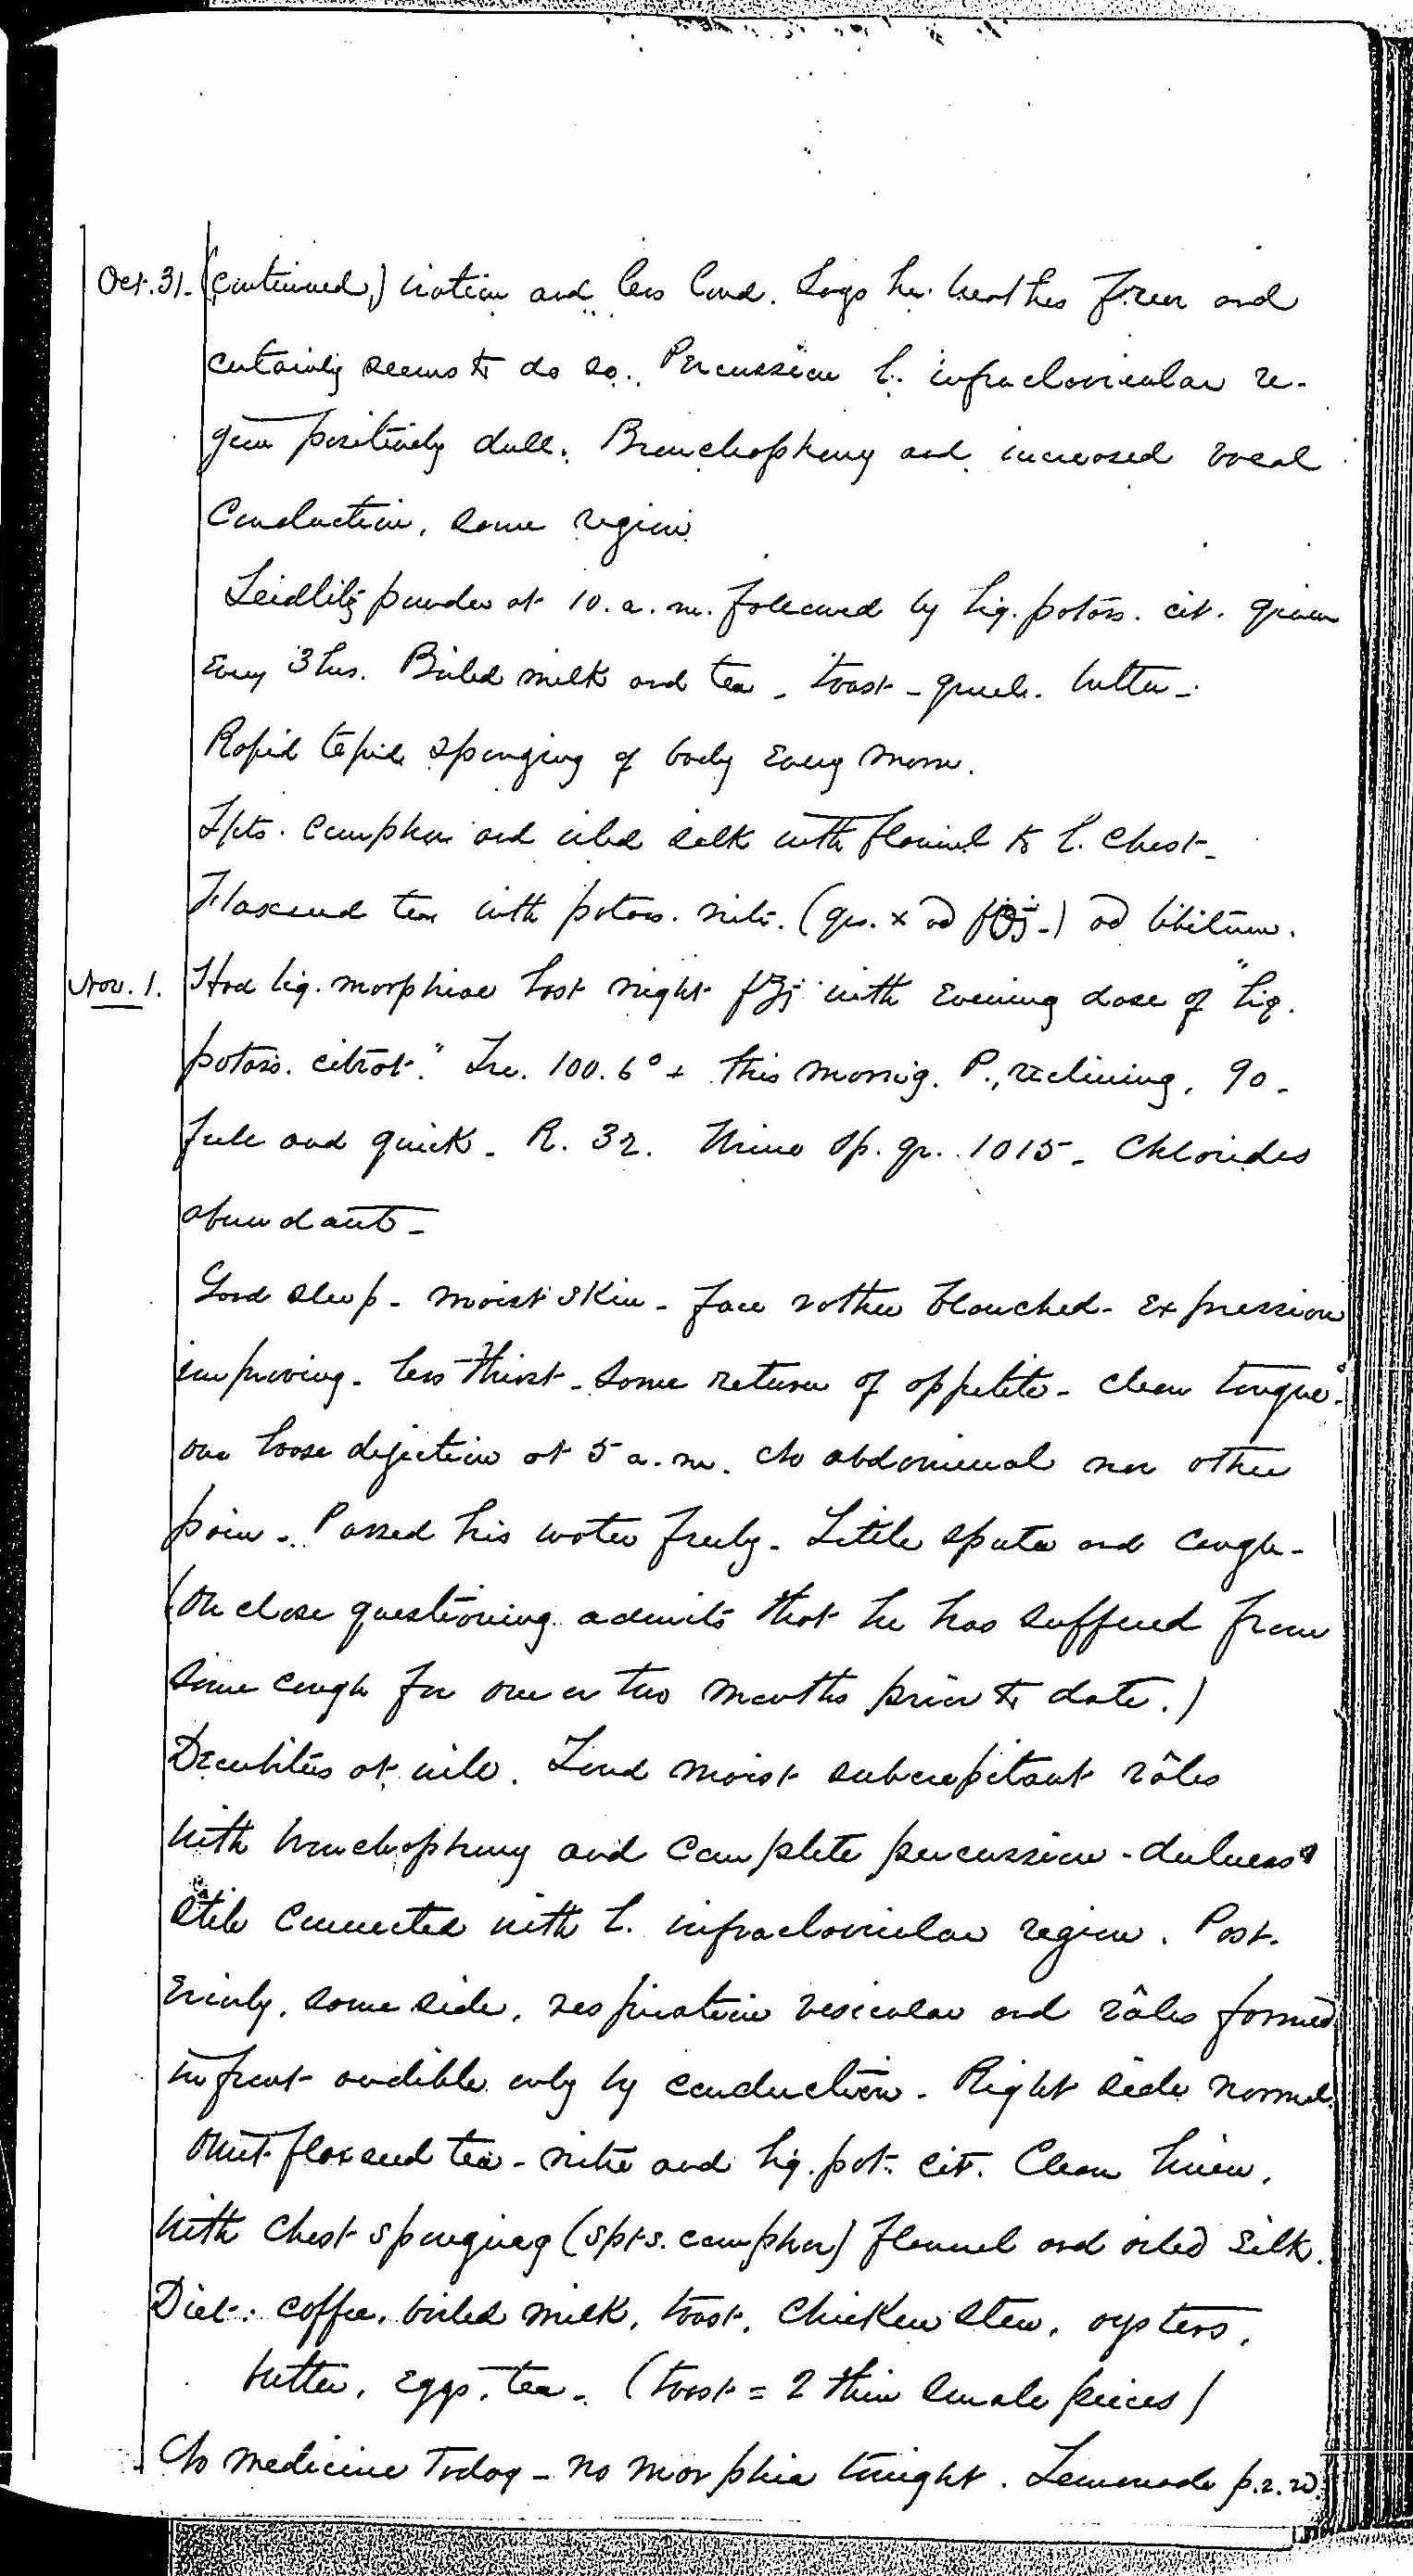 Oct. 31. (continued,) iration and less loud. Says he breathes freer and
certainly seems to do so. Percussion l. infraclavicular re-
gion positively dull. Bronchophony and increased vocal
conduction, same region.
Seidlitz powder at 10. a. m. followed by liq. potass. cit. given
every 3 hrs. Boiled milk and tea - toast - gruel. butter -
Rapid tepid sponging of body every morn.
Spts. camphor and oiled silk with flannel to l. chest -
Flaxseed tea with potass. nitr. (grs. x ad f℥j.) ad libitum.
Nov. 1. Had liq. morphiae last night fʒj with evening dose of "liq.
potass. citrat." Tre. 100.6° + this morning. P., reclining, 90 -
full and quick - R. 32. Urine sp. gr. 1015 - Chlorides
abundant -
Good sleep - moist skin - face rather blanched - expression
improving - less thirst - some return of appetite - clean tongue.
one loose dejection at 5 a. m. No abdominal nor other
pain - Passed his water freely - Little sputa and cough -
(On close questioning admits that he has suffered from
some cough for one or two months prior to date.)
Decubitus at will. Loud moist subcrepitant râles
with bronchophony and complete percussion-dulness
still connected with l. infraclavicular region. Post-
eriorly, same side, respiration vesicular and râles formed
in front audible only by conduction. Right side normal.
Omit flaxseed tea - nitre and liq. pot. cit. Clean linen,
with chest sponging (spts. camphor) flannel and oiled silk.
Diet: coffee, boiled milk, toast, chicken stew, oysters,
butter, eggs, tea. (toast = 2 thin small pieces)
No medicine today - no morphia tonight. Lemonade p.r.n.